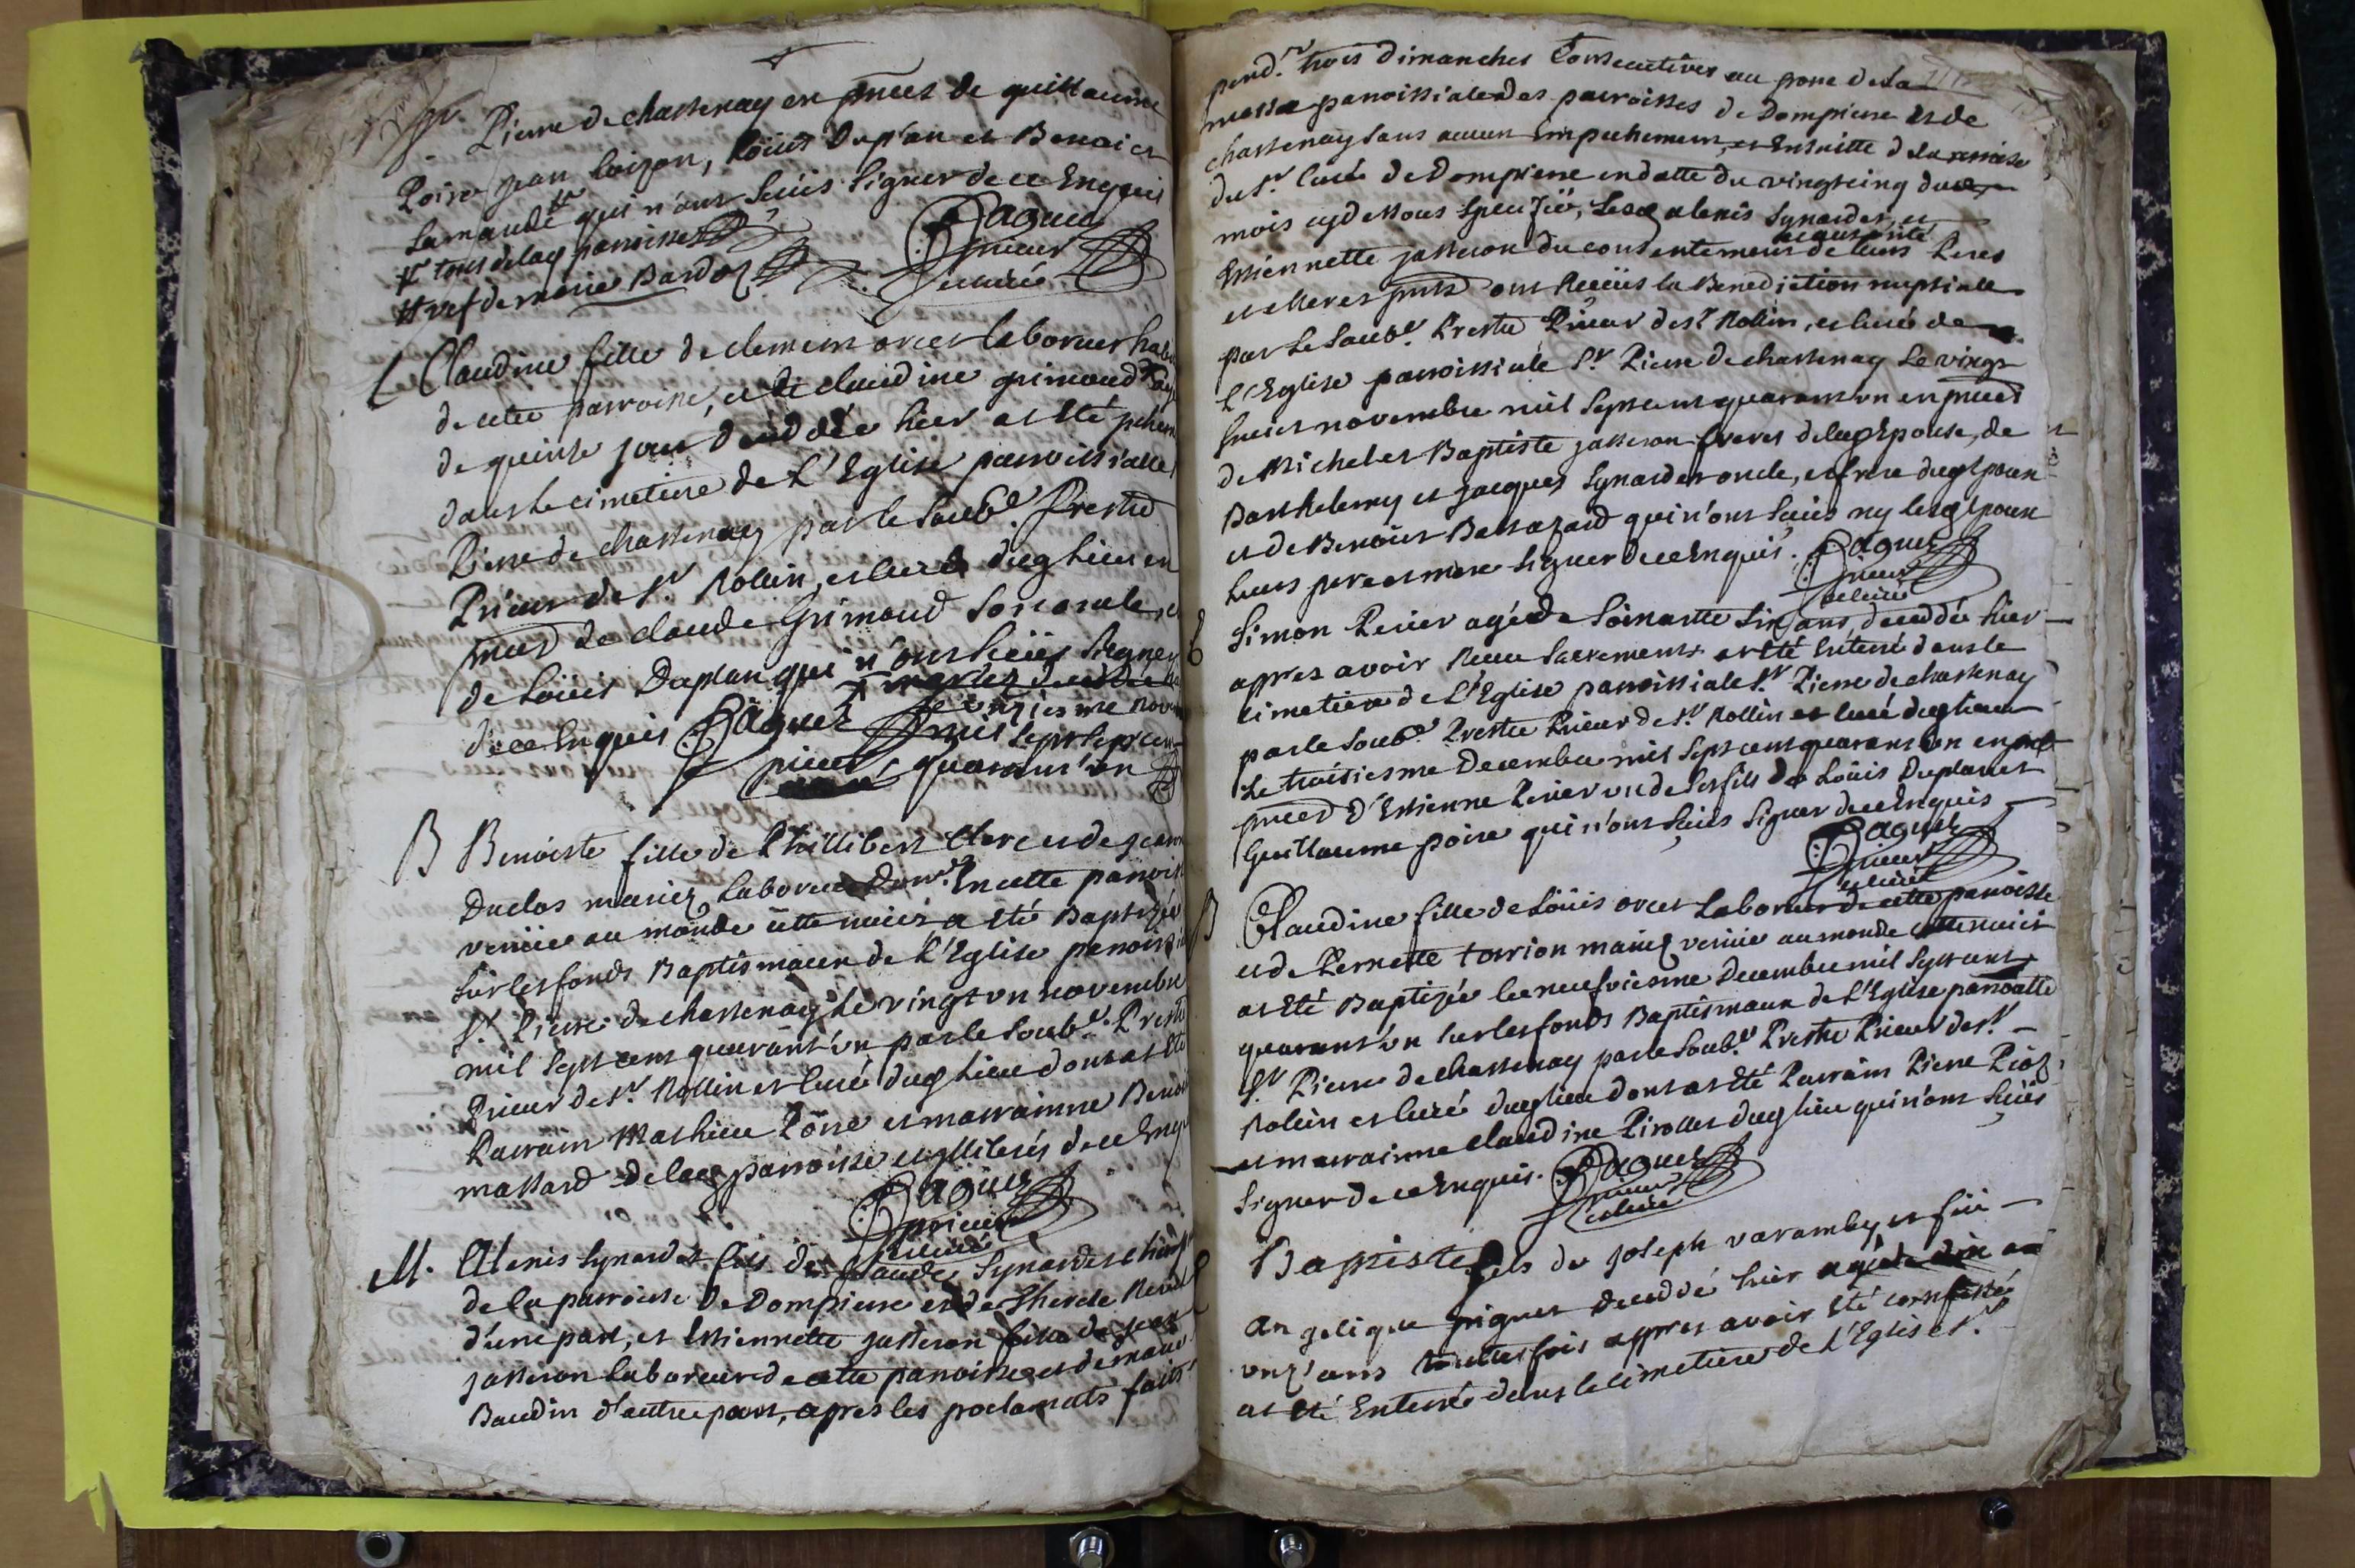 Pierre de chastenay en pnces de guillaume
Poire jean loizon, Loüis Duplan et Benoict
Lamaude qui n'ont sceüs signer de ce Enquis
tous de lad parroisse
vef de marie Bardoz
Paquet
prieur
et curé
Claudine fille de clement orcet laboreur
de cette parroisse, et de claudine grimaud
de quinse jour deceddée hier at Eté
dans le cimetiere de L'Eglise parroissialle
Pierre de chastenay par le soub.é Prestre
Prieur de S.t Rollin, et curé dug lieu en
pnces de claude Grimaud son oncle, et
de Loüis Duplan qui n'ont sceües signer
de ce Enquis Paquet
mil sept cent
prieur quarant'un
B Benoiste fille de Phillibert Clerc et de jeanne
Duclos mariez laboreur En cette parroisse
venüe au monde cette nuict a Eté Baptizée
sur les fonds Baptismaux de L'Eglise parroissialle
S.t Pierre de chastenay le vingt un novembre
mil sept cent quarant'un par le soub.é Prestre
Prieur de S.t Rollin et curé dug lieu dont at Eté
Parrain Mathieu Poire et marrainne Benoiste
massard de lad parroisse et illiterés de ce Enquis
Paquet
prieur
et curé
M. Alexis Synardet fils de Claude Synardet
de la parroisse de Dompierre et de
d'une part, et Estiennette jasseron fille de jean
jasseron laboreur de cette parroisse et de marie
Baudin d'autre part, apres les proclamats faits
pend.t trois Dimanches Consecutives au prone de la
messe parroissiale des parroisses de Dompierre et de
chastenay sans aucun Empechement, et Ensuitte de la remise
du S.r Curé de Dompierre en datte du vingtcinq du
mois cy dessous specifié, Lesd alexis Synardet, et
Estiennette jasseron du consentement et autorité de leurs Peres
et Meres pnts ont Receüs la Benediction nuptialle
par le soub.é Prestre Prieur de S.t Rollin, et curé de
L'Eglise parroissiale S.t Pierre de chastenay Le vingt
huict novembre mil sept cent quarant'un en pnces
de Michel et Baptiste jasseron freres de lad Epouse, de
Barthelemy et jacques Synardet oncle, et frere dug Epoux
et de Benoist Bassazard qui n'ont sceüs ny lesd Epoux
leurs pere et mere signer de ce Enquis. Paquet
prieur
et curé
Simon Perier agé de soixantte six ans, deceddé hier
appres avoir Receu sacrements at Eté Enterré dans le
cimetiere de L'Eglise parroissiale S.t Pierre de chastenay
par le soub.é Prestre Prieur de S.t Rollin et curé dug lieu
Le troisiesme Decembre mil sept cent quarant'un en
pnces d'Estienne Perier un de ses fils de Loüis Duplan et
Guillaume poire qui n'ont sceüs signer de ce Enquis
Paquet
prieur
et curé
B Claudine fille de Loüis orcet Laboreur de cette parroisse
et de Pernette tarion mariez venüe au monde cette nuict
at Eté Baptizée le neufviesme Decembre mil sept cent
quarant'un sur les fonds Baptismaux de L'Eglise parroialle
S.t Pierre de chastenay par le soub.é Prestre Prieur de S.t
Rolin et curé dug lieu dont at Eté Parrain Pierre Pioz
et marrainne claudine Pirollet dug lieu qui n'ont sceües
signer de ce Enquis. Paquet
prieur
et curé
Baptiste fils de joseph varambey et feü
angelique deceddé hier
unz'ans touttesfois appres avoir Eté confessé
at Eté Enterré dans le cimetiere de L'Eglise S.t